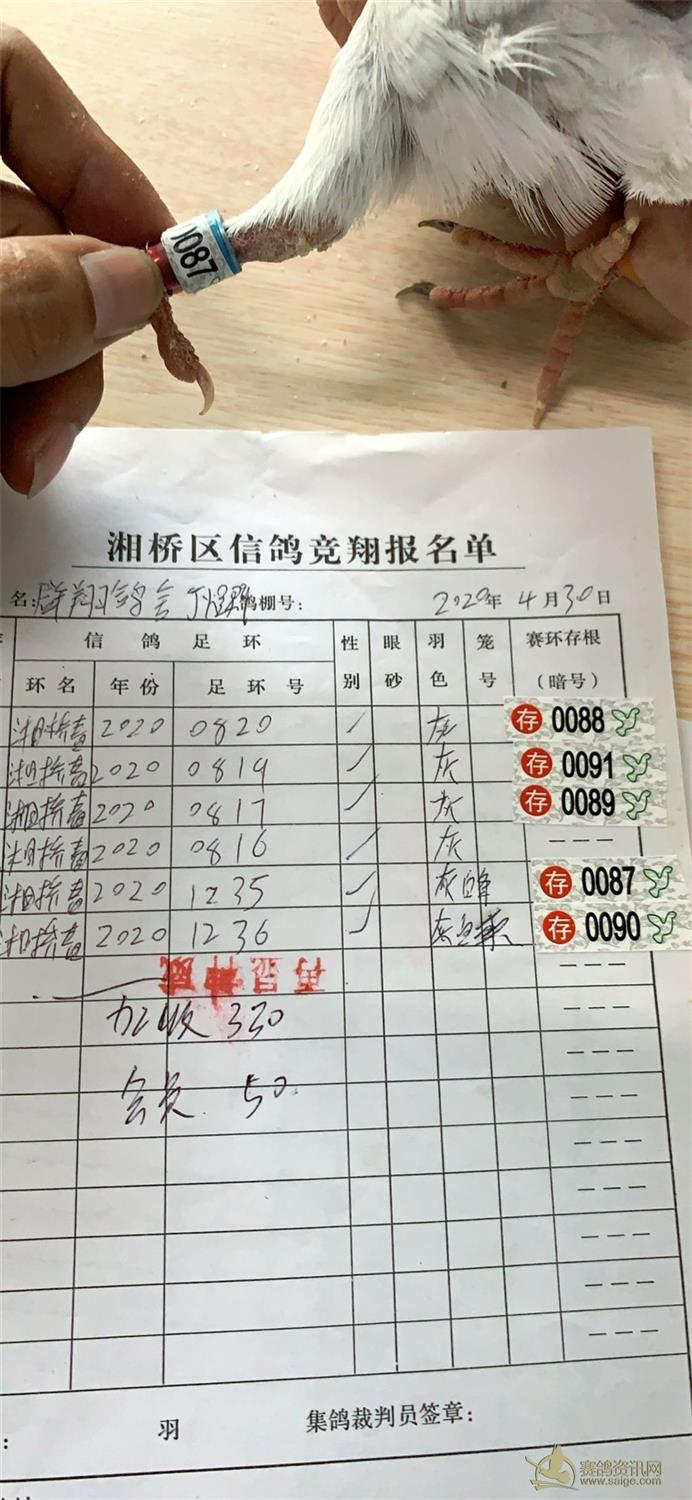 0087
湘桥区信鸽竞翔报名单
名: 群翔 鸽会 鸽棚号: 2020年 4月30日
信鸽足环 性别 眼砂 羽色 笼号 赛环存根(暗号)
环名 年份 足环号
湘桥 2020 0820 灰 存 0088
湘桥 2020 0819 灰 存 0091
湘桥 2020 0817 灰 存 0089
湘桥 2020 0816 灰 ---
湘桥 2020 1235 灰白 存 0087
湘桥 2020 1236 灰白 存 0090
---
加收 330 ---
---
会员 50 ---
---
---
---
---
---
: 羽 集鸽裁判员签章:
赛鸽资讯网
www.saige.com